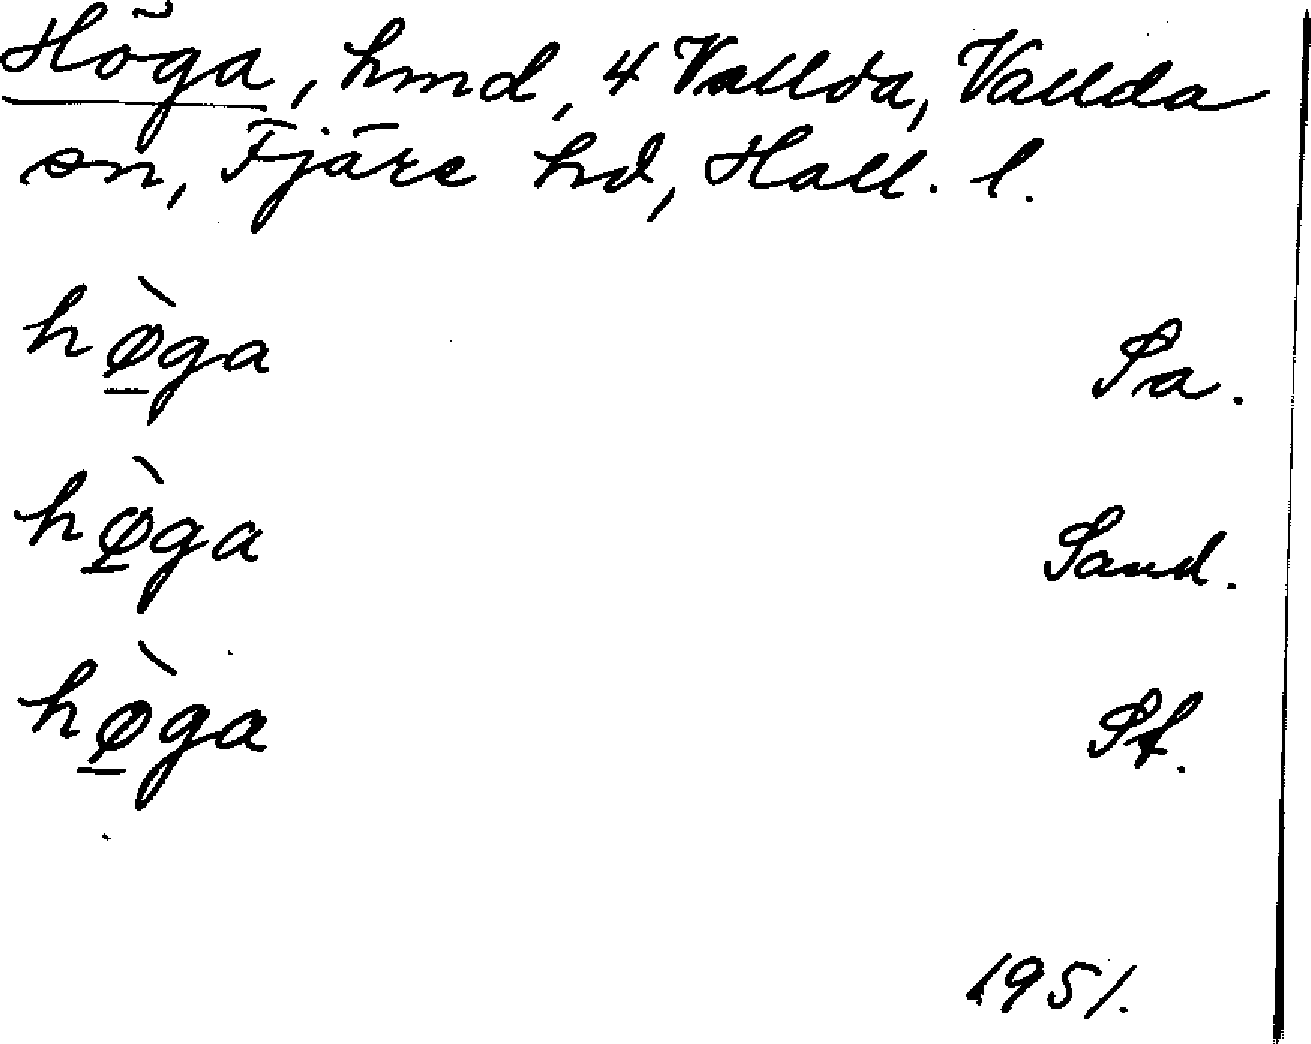 Höga, hmd, 4 Vallda, Vallda
sn, Fjäre hd, Hall. l.
hø̱̀ga Sa.
hø̱̀ga Sand.
hø̱̀ga St.
1951.